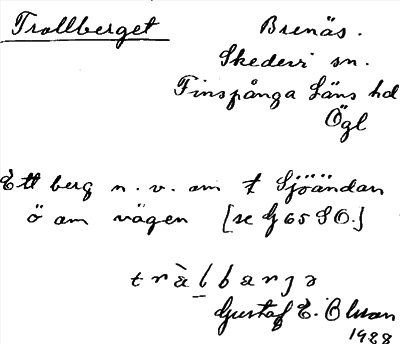 Trollberget
Brenäs.
Skedevi sn.
Finspånga Läns hd
Ögl
Ett berg n. v. om t Sjöändan
ö om vägen [se G 65 SO.]
tràlbarjə
Gustaf E. Olsson
1928